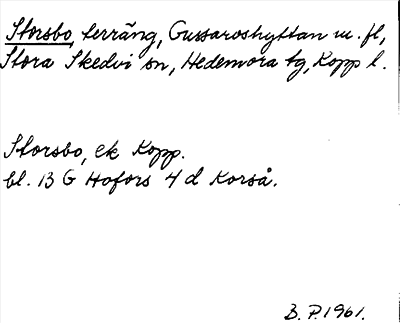 Storsbo, terräng, Gussaroshyttan m. fl,
Stora Skedvi sn, Hedemora tg, Kopp l.
Storsbo, ek Kopp.
bl. 13 G Hofors 4 d Korså.
B. P. 1961.